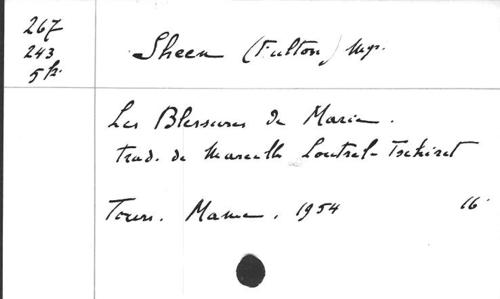 267
243
5 h.
Sheen (Fulton) Mgr.
Les Blessures de Marie.
trad. de Marcelle Loutrel-Tschirret
Tours. Mame. 1954 16